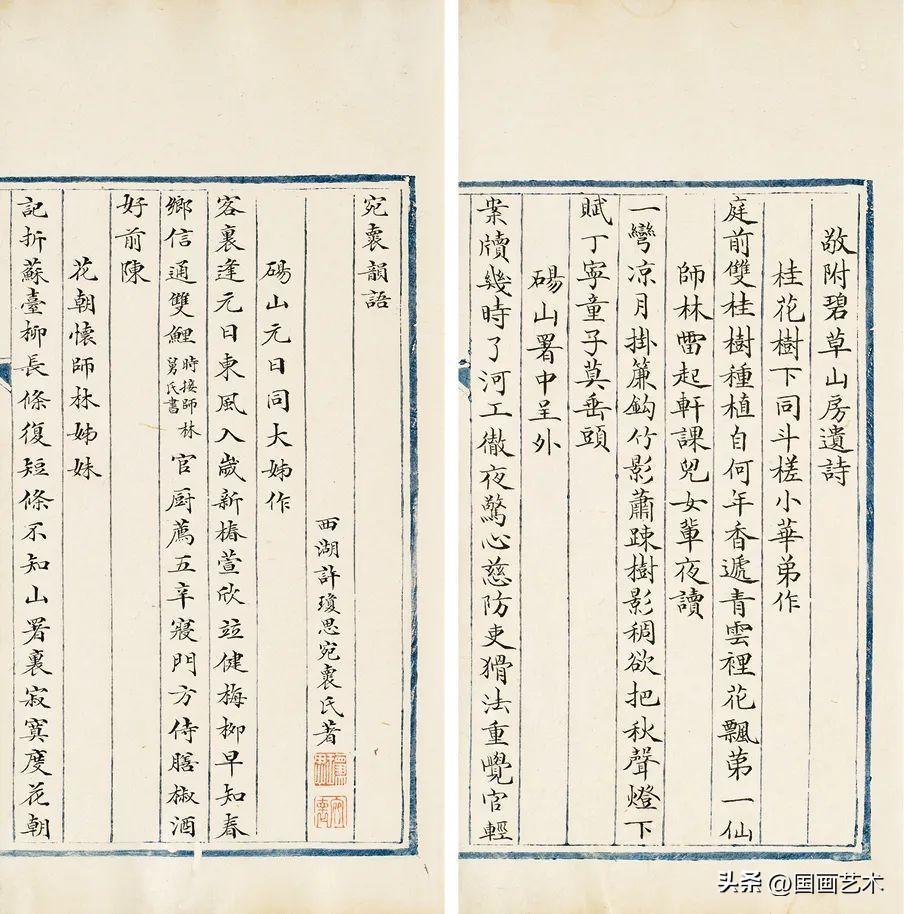 敬附碧草山房遺詩
桂花樹下同斗槎小華弟作
庭前雙桂樹種植自何年香遞青雲裡花飄苐一仙
師林雷起軒課兒女輩夜讀
一彎凉月掛簾鈎竹影蕭疎樹影稠欲把秋聲燈下
賦丁寧童子莫垂頭
碭山署中呈外
案牘幾時了河工徹夜驚心慈防吏猾法重覺官輕
宛褱韻語
西湖許瓊思宛褱氏著
碭山元日同大姊作
客裏逢元日東風入歲新椿萱欣竝健梅柳早知春
鄉信通雙鯉時接師林舅氏書官厨薦五辛寢門方侍膳椒酒
好前陳
花朝懷師林姊妹
記折蘇臺柳長條復短條不知山署裏寂寞度花朝
头条 @国画艺术